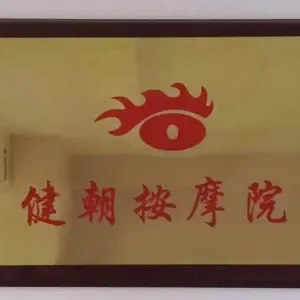 健朝按摩院